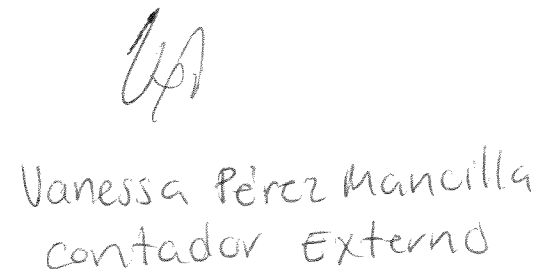 Vanessa Pérez Mancilla
contador Externo